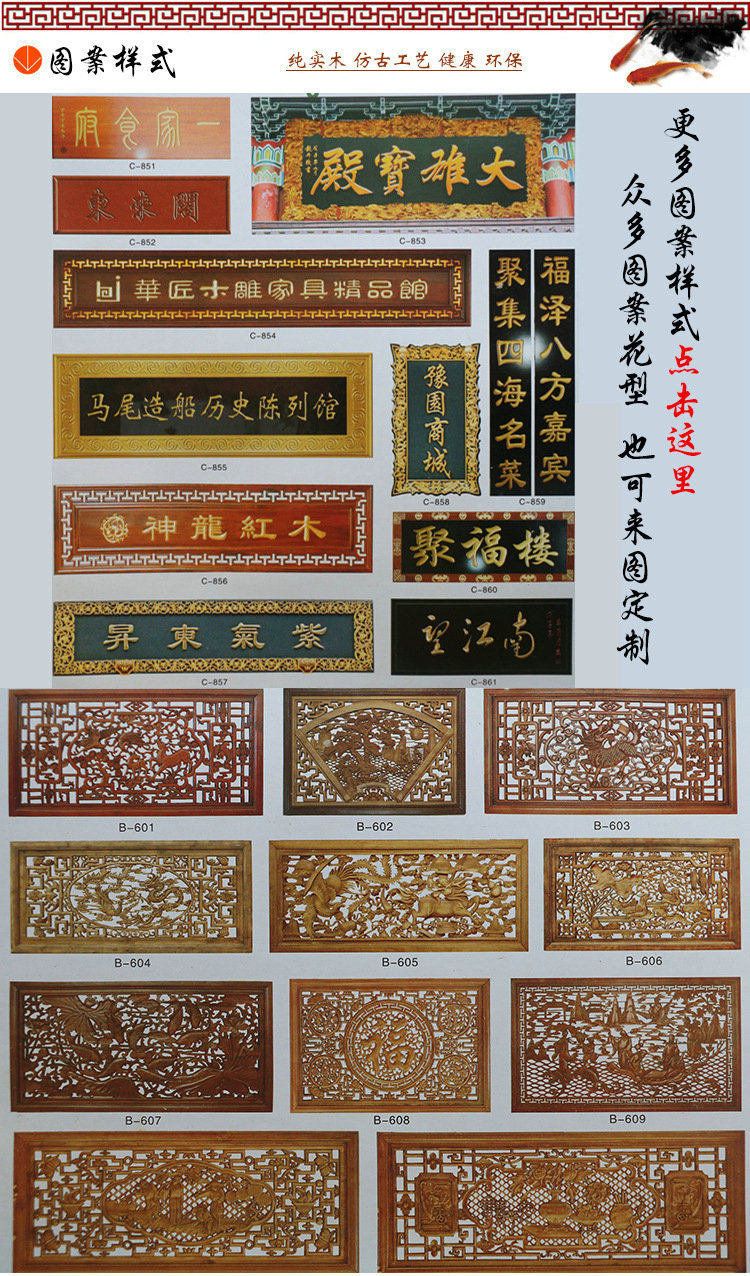 图案样式
纯实木 仿古工艺 健康 环保
更多图案样式点击这里
众多图案花型 也可来图定制
一家食府
C-851
東來閣
C-852
大雄寶殿
C-853
華匠木雕家具精品館
C-854
马尾造船历史陈列馆
C-855
神龍紅木
C-856
紫氣東昇
C-857
豫园商城
C-858
福泽八方嘉宾
聚集四海名菜
C-859
聚福楼
C-860
望江南
C-861
B-601
B-602
B-603
B-604
B-605
B-606
B-607
福
B-608
B-609